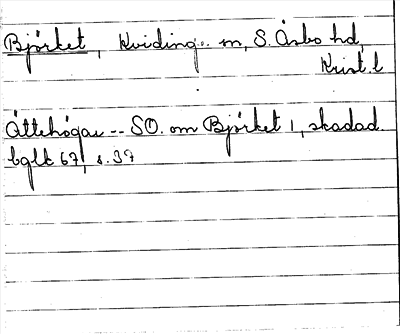 Björket, Kvidinge m, S. Åsbo hd,
Krist. l
Ättehögar -- SO. om Björket 1, skadad.
bglt 67, s. 37